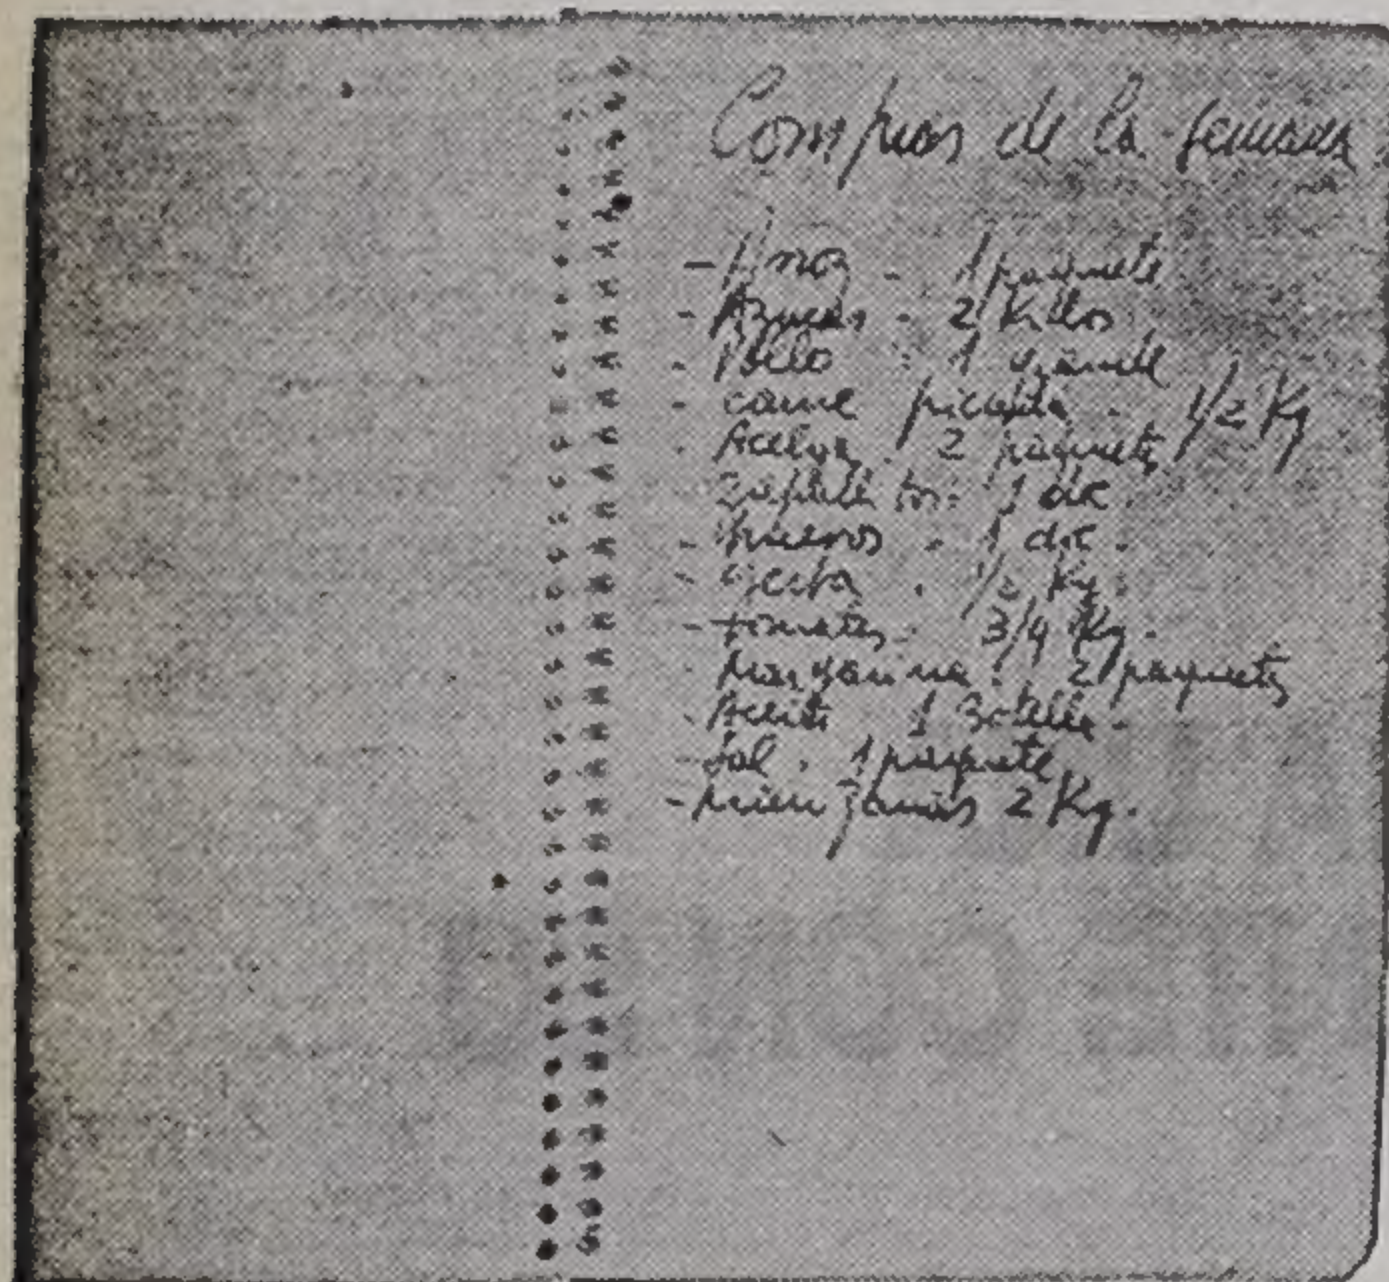 Compras de la semana.
- Arroz - 1 paquete
- Azúcar - 2 Kilos
- Pollo - 1 grande
- carne picada - 1/2 Kg
- Acelga - 2 paquetes
- zapallitos - 1 doc.
- huevos - 1 doc.
- 1/2 Kg.
- tomates - 3/4 Kg.
- Margarina - 2 paquetes
- Aceite - 1 Botella -
- Sal - 1 paquete
- manzanas 2 Kg.